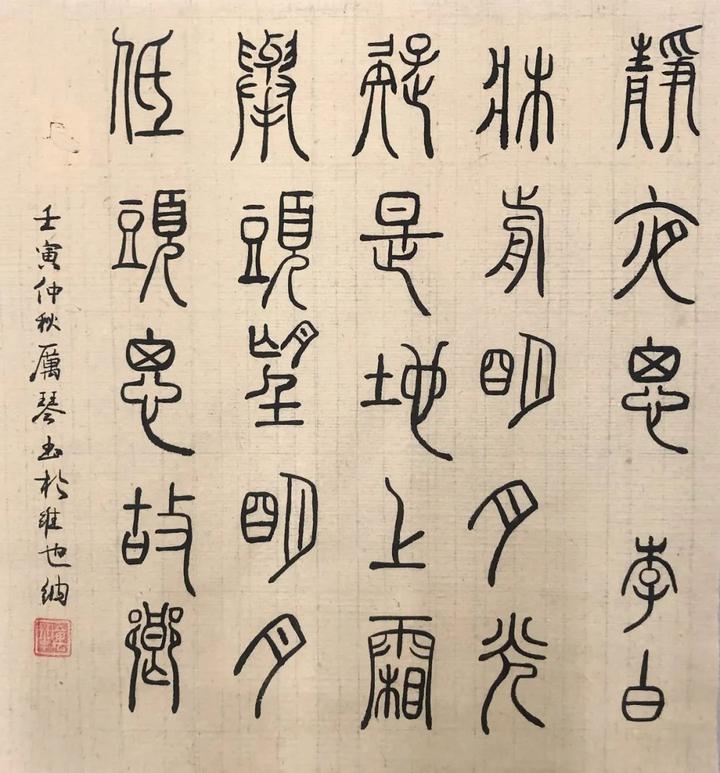 靜夜思 李白
牀前明月光
疑是地上霜
舉頭望明月
低頭思故鄉
壬寅仲秋厲琴書於維也納